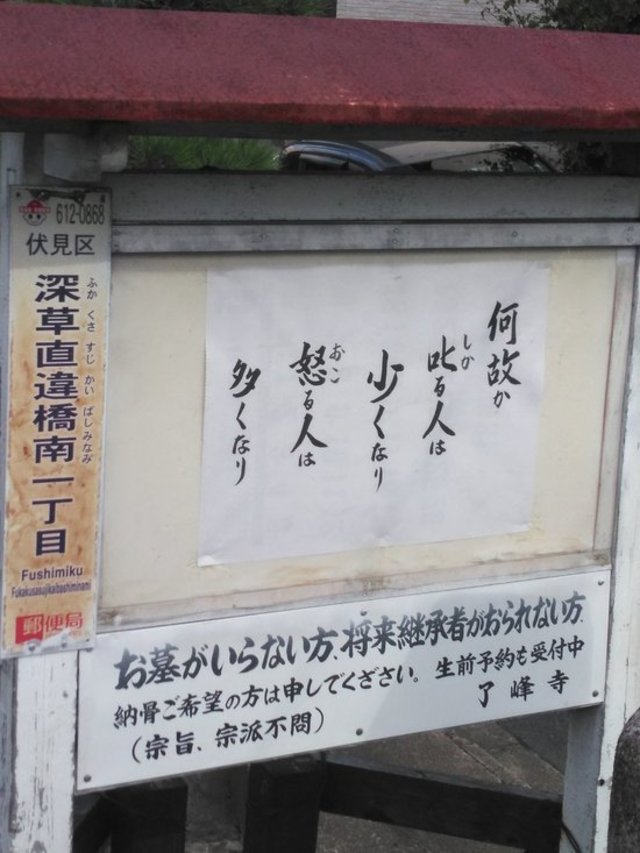 612-0868
伏見区
深草直違橋南一丁目
ふかくさすじかいばしみなみ
Fushimiku
Fukakusasujikaibashiminami
郵便局
何故か
叱る人は
しか
少くなり
怒る人は
おこ
多くなり
お墓がいらない方、将来継承者がおられない方、
納骨ご希望の方は申しでください。生前予約も受付中
(宗旨、宗派不問)
了峰寺